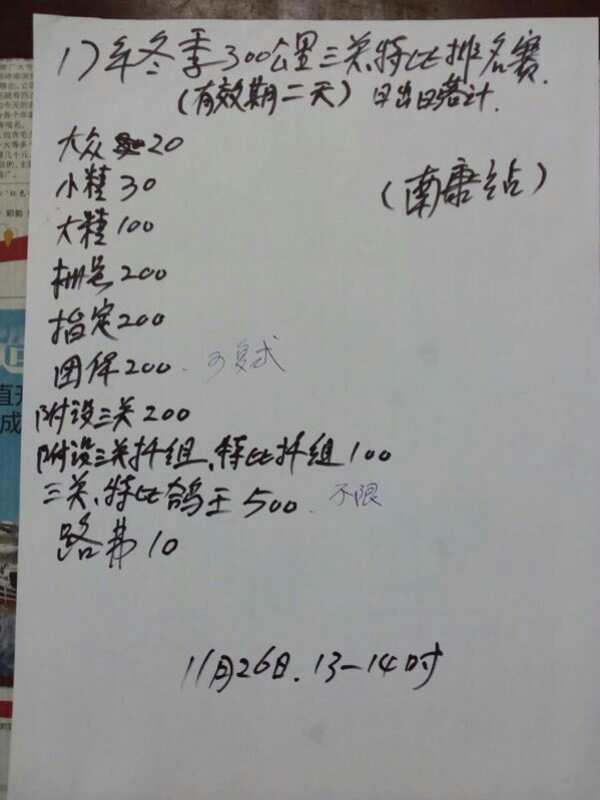 17年冬季300公里三关、特比排名赛.
(有效期二天)日出日落计.
大众20
(南唐站)
小精30
大精100
栅号200
指定200
团体200. 可复式
附设三关200
附设三关抨组、特比抨组100
三关、特比鸽王500. 不限
路费10
11月26日.13-14时